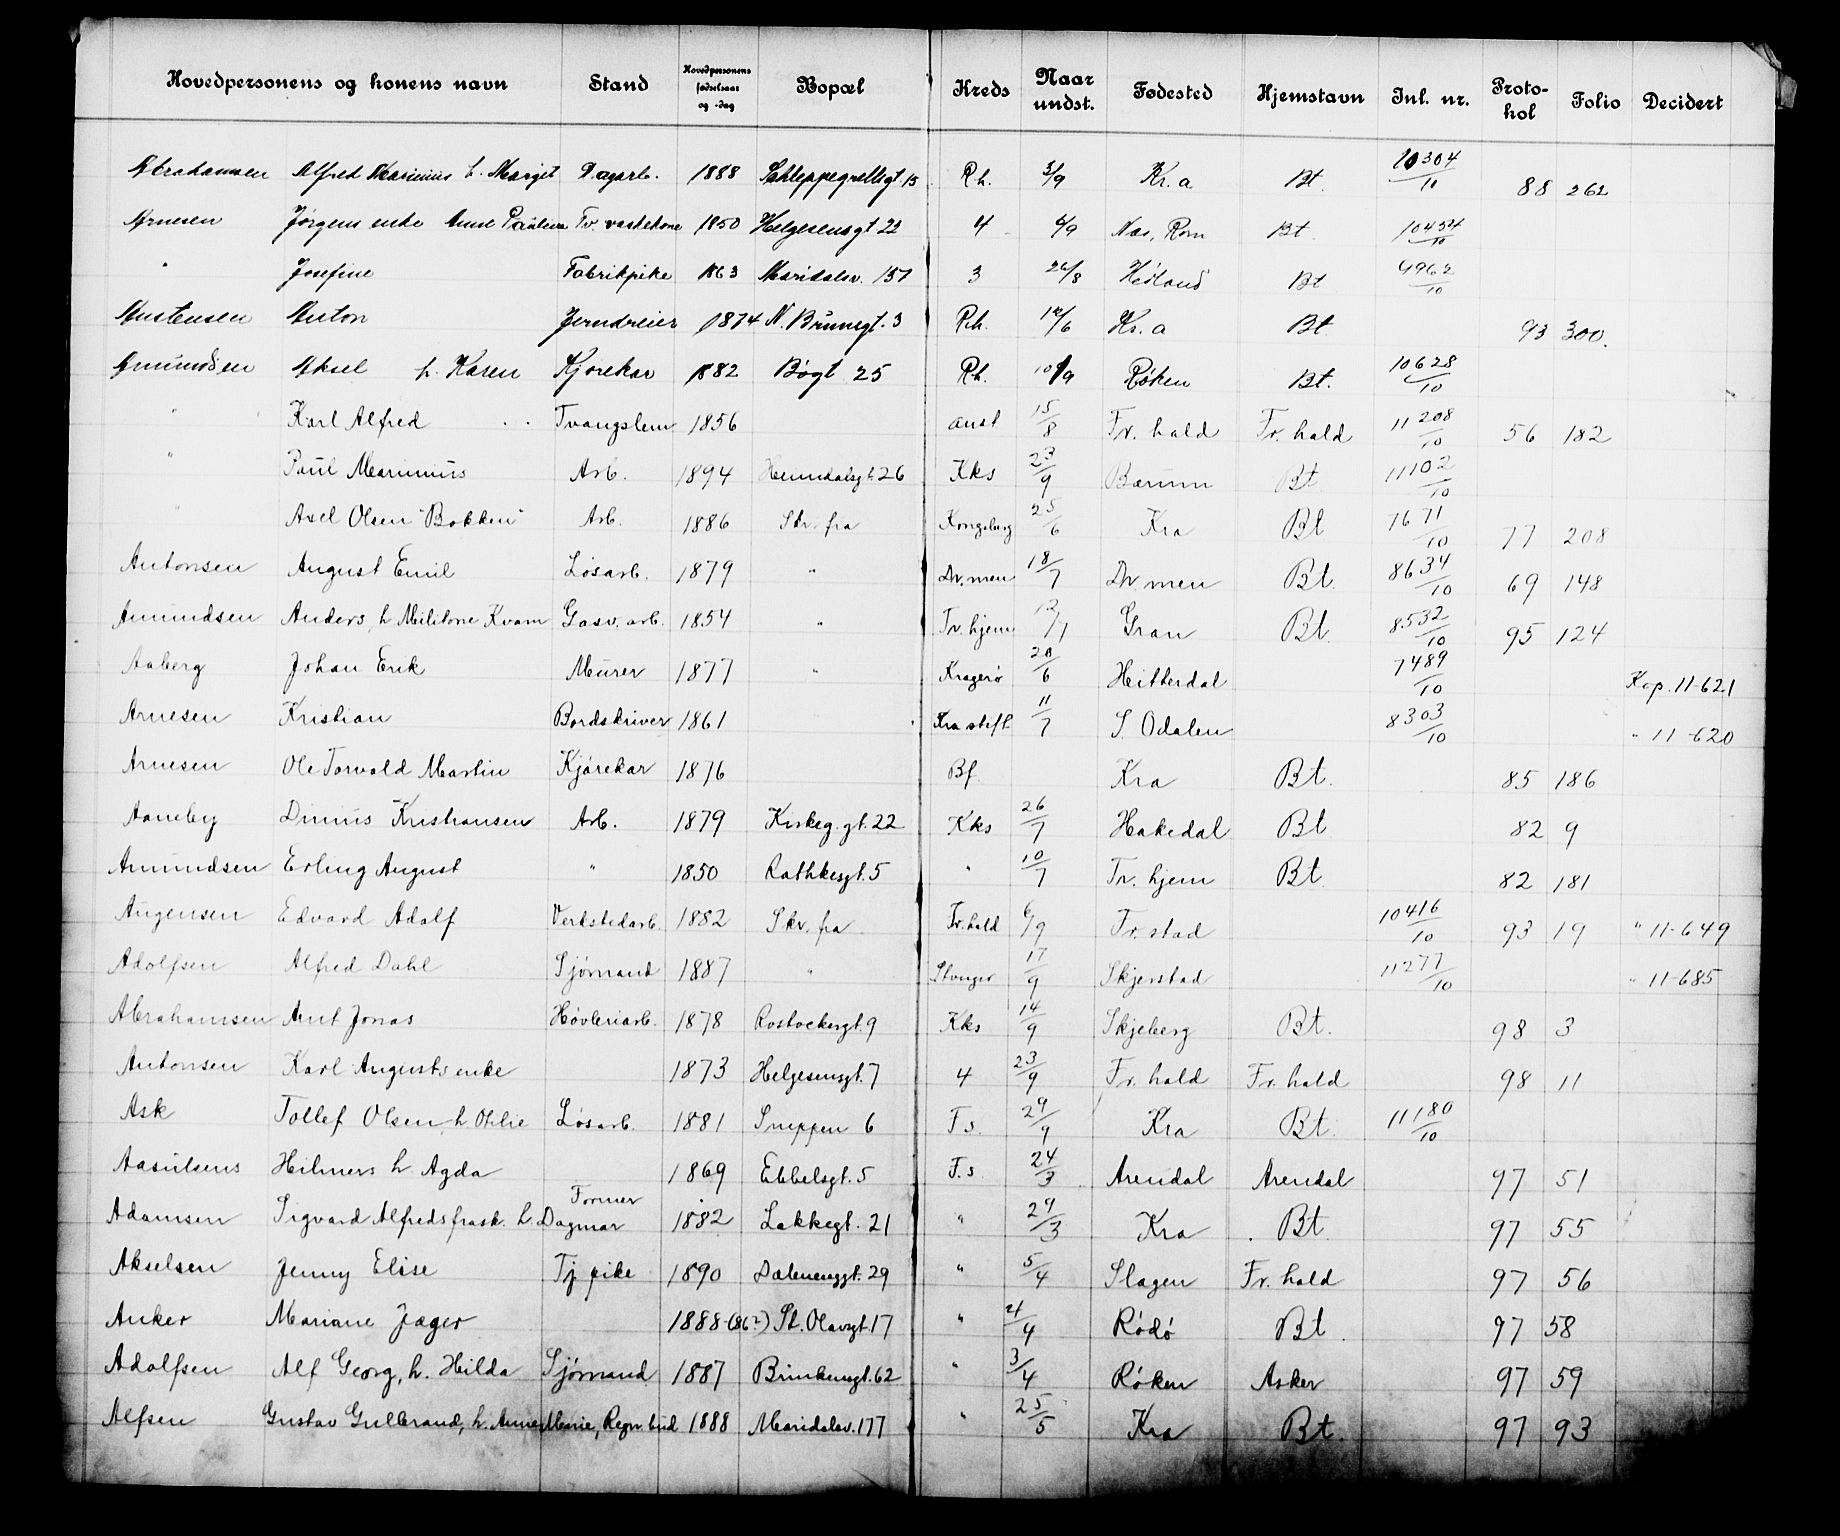 Hovedpersonens og konens navn Stand Hovedpersonens fødselsaar og -dag Bopæl Kreds Naar undst. Fødested Hjemstavn Inl. nr. Protokol Folio Decidert
Abrahamsen Alfred Marinius h. Margit Dagarb. 1888 Schleppegrellsgt 15 Rh. 3/9 Kr.a Bt. 10304/10 88 262
Arnesen Jørgens enke Anne Pauline Tv. vaskekone 1850 Helgesensgt 22 4 6/9 Næs, Rom Bt. 10454/10
" Josefine Fabrikpike 1863 Maridalsv. 137 3 26/8 Høland Bt 9962/10
Austensen Anton Jerndreier 1874 N. Brunsgt. 3 Rh. 14/6 Kr.a Bt 93 300.
Amundsen Aksel h. Karen Kjørekar 1882 Bøgt 25 Rh. 10/9 Røken Bt. 10628/10
" Karl Alfred Tvangslem 1856 anst 15/8 Fr. hald Fr. hald 11208/10 56 182
" Paul Marinius Arb. 1894 Heimdalsgt. 26 Kks 23/9 Bærum Bt 11102/10
" Axel Olsen "Bokken" Arb. 1886 Skr. fra Kongsberg 25/6 Kra Bt 7671/10 77 208
Antonsen August Emil Løsarb. 1879 " Dr.men 18/7 Dr men Bt. 8634/10 69 148
Amundsen Anders, h Militone Kvam Gasv. arb. 1854 " Tr. hjem 12/7 Gran Bt. 8532/10 95 124
Aaberg Johan Erik Murer 1877 " Kragerø 20/6 Hitterdal 7489/10 Kop. 11-621
Arnesen Kristian Bordskriver 1861 Kra stift 11/7 S. Odalen 8303/10 " 11-620
Arnesen Ole Torvald Martin Kjørekar 1876 Bf. Kra Bt. 85 186
Aaneby Dinius Kristiansen Arb. 1879 Kirkeg.gt. 22 Kks 26/7 Hakedal Bt 82 9
Amundsen Erling August " 1850 Rathkesgt. 5 " 10/7 Tr. hjem Bt. 82 181
Augensen Edvard Adolf Verkstedarb. 1882 Skr. fra Fr.hald 6/9 Fr. stad 10416/10 93 19 " 11-649
Adolfsen Alfred Dahl Sjømand 1887 " Stvnger 17/9 Skjerstad 11277/10 " 11-685
Abrahamsen Amt Jonas Høvleriarb. 1878 Rostockergt. 9 Kks 14/9 Skjeberg Bt. 98 3
Antonsen Karl Augusts enke 1873 Helgesensgt. 7 4 23/9 Fr. hald Fr. hald 98 11
Ask Tollef Olsen h Otilie Løsarb. 1881 Snippen 6 Fs. 29/9 Kra Bt. 11180/10
Aasulsens Hilmers h. Agda 1869 Ebbelsgt. 5 F.s 24/3 Arendal Arendal 97 51
Adamsen Sigvard Alfreds frask. h. Dagmar Former 1882 Lakkegt. 21 " 29/3 Kra Bt. 97 55
Akselsen Jenny Elise Tj pike 1890 Dælenenggt. 29 " 5/4 Slagen Fr. hald 97 56
Anker Mariane Jæger 1888-(86?) St. Olavsgt. 17 " 4/4 Rødø Bt. 97 58
Adolfsen Alf Georg, h. Hilda Sjømand 1887 Brinkensgt. 62 " 3/4 Røken Asker 97 59
Alfsen Gustav Gulbrand, h. Anne Marie, Regn.bud 1888 Maridalsv. 177 " 25/5 Kra Bt. 97 93